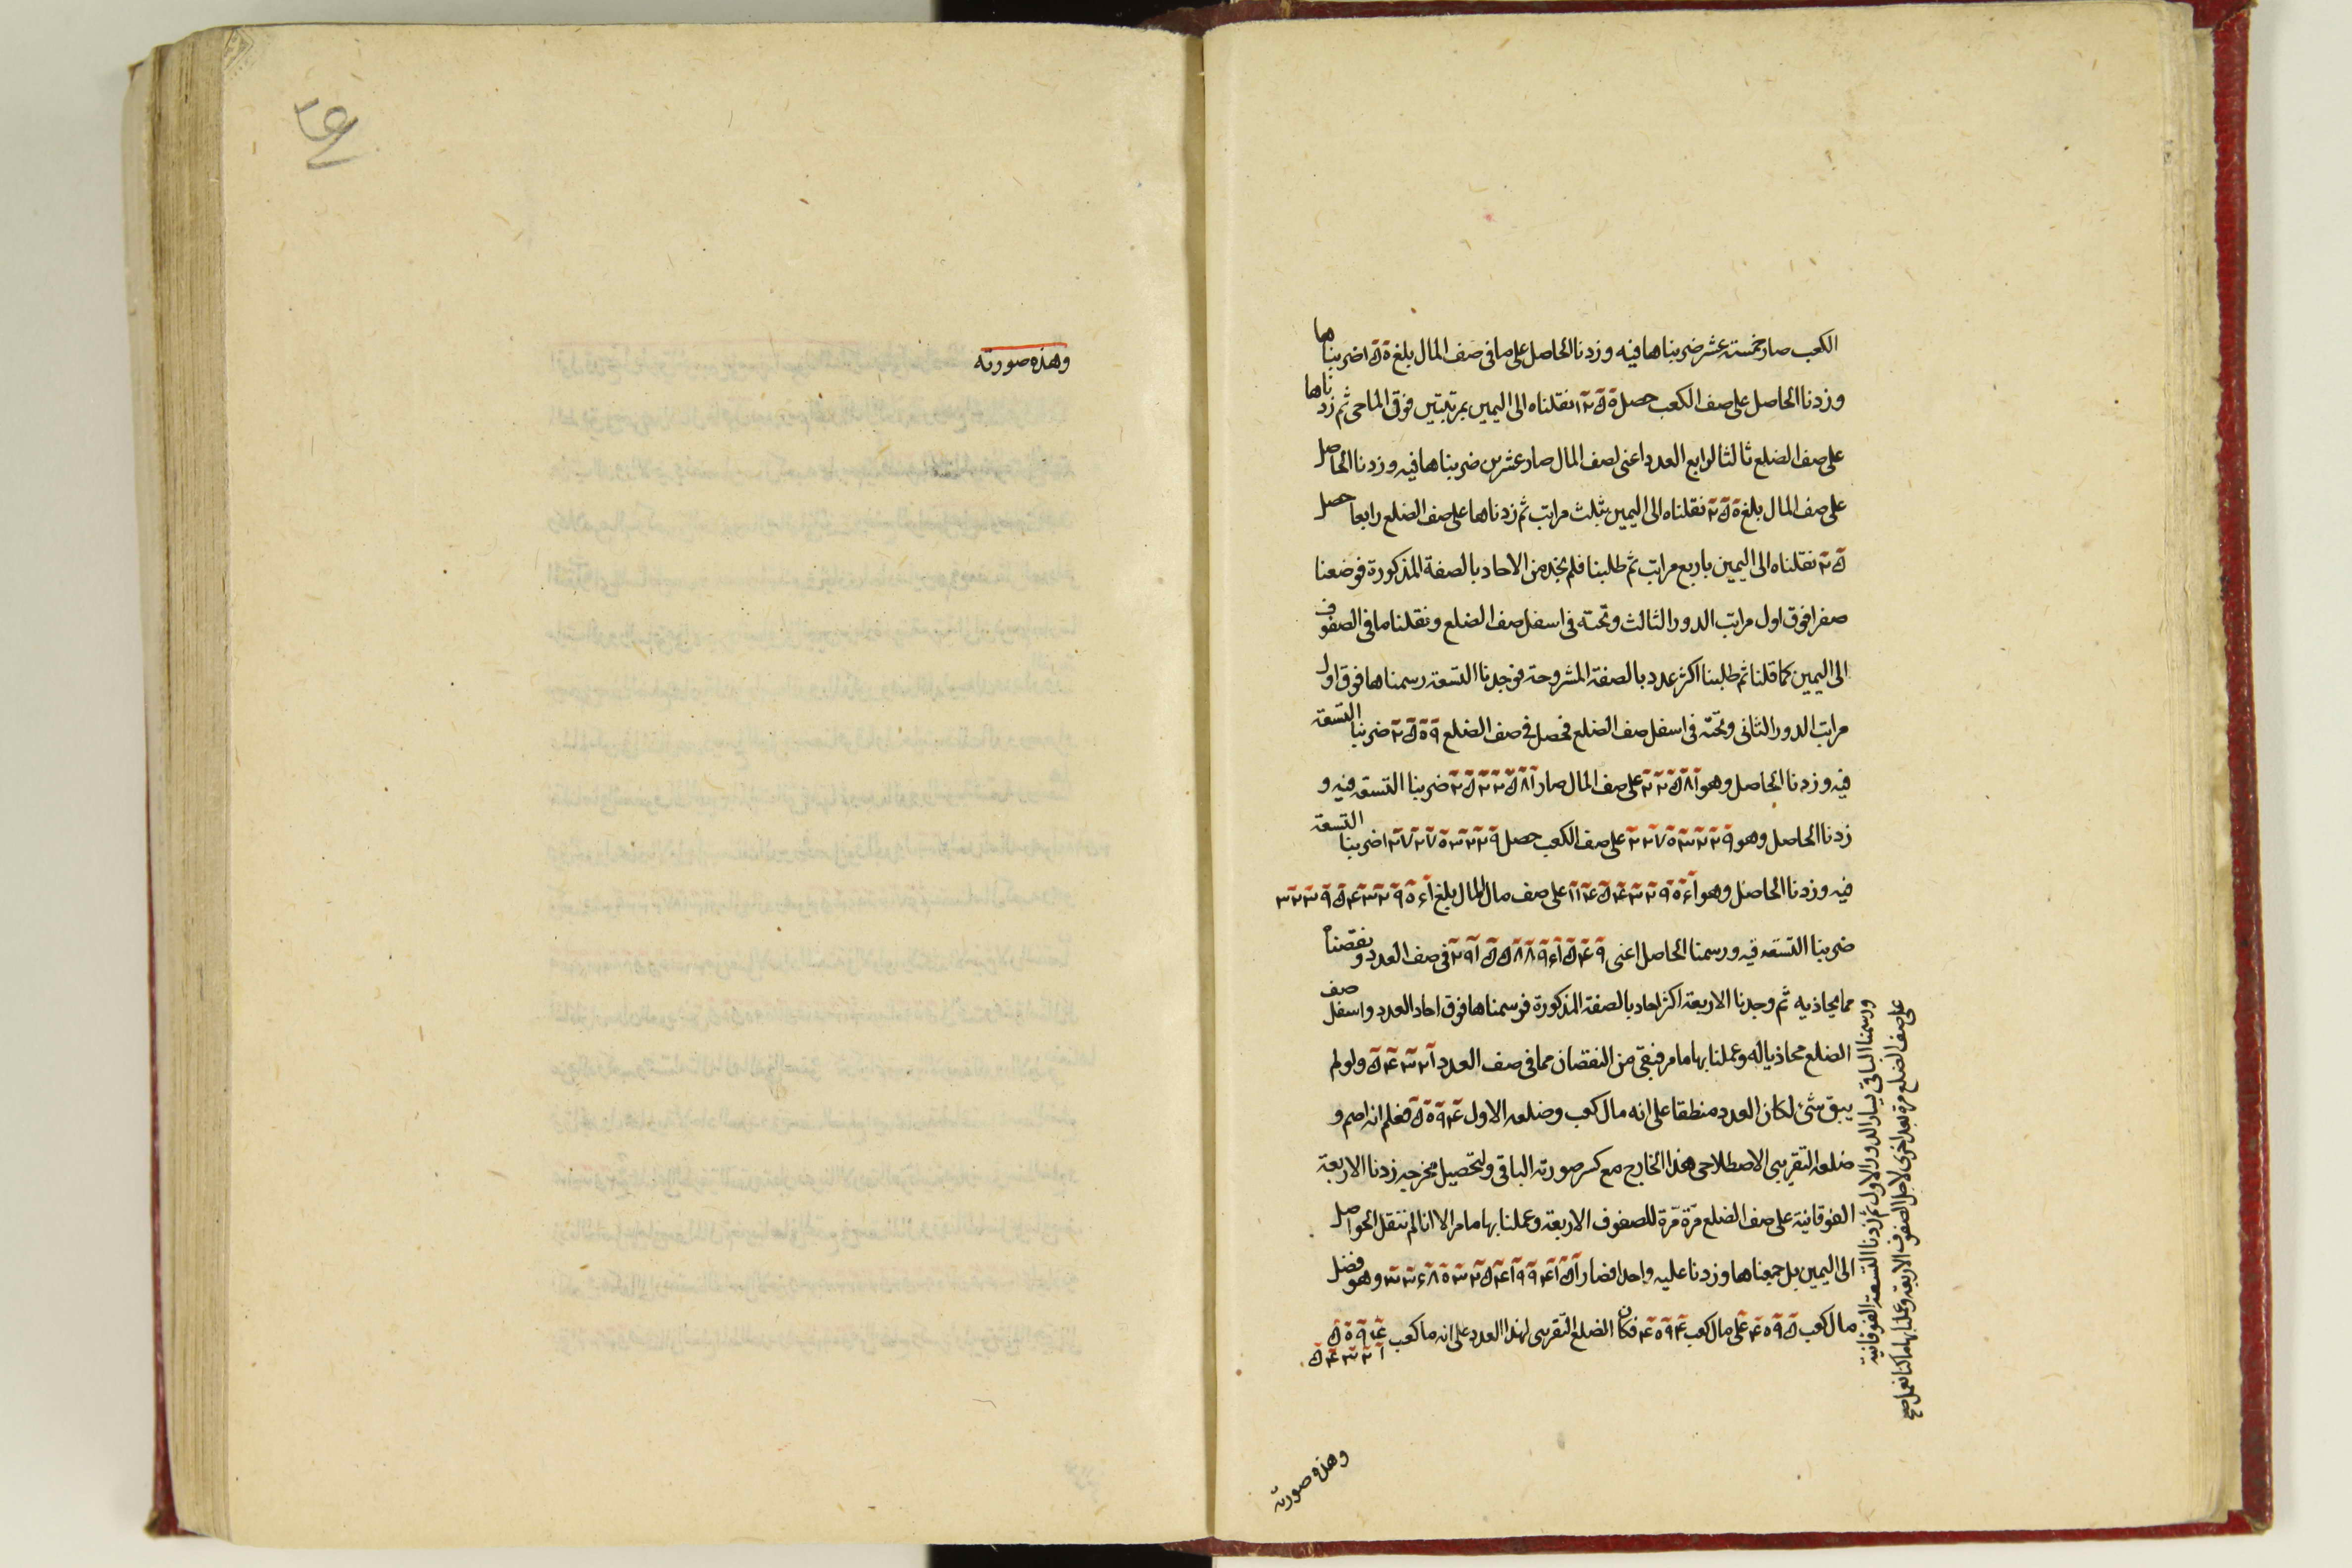 الكعب صار خمسة عشر ضربناها فيه وزدنا الحاصل على ما في صف المال بلغ ٥٠ ا ضربناها
وزدنا الحاصل على صف الكعب حصل نقلناه الى اليمين بمرتبتين فوق الماحى ثم زدناها
على صف الضلع ثالثا لرابع العدد اعنى لصف المال صار عشرين ضربناها فيه وزدنا الحاصل
على صف المال بلغ نقلناه الى اليمين بثلث مراتب ثم زدناها على صف الضلع رابعا حصل
نقلناه الى اليمين باربع مراتب ثم طلبنا فلم نجد من الاحاد بالصفة المذكورة فوضعنا
صفرا فوق اول مراتب الدور الثالث وتحته في اسفل صف الضلع ونقلنا ما في الصفوف
الى اليمين كما قلنا ثم طلبنا اكثر عدد بالصفة المشروحة فوجدنا التسعة رسمناها فوق اول
مراتب الدور الثانى وتحته في اسفل صف الضلع فحصل في صف الضلع ضربنا التسعة
فيه وزدنا الحاصل وهو على صف المال صار ضربنا التسعة فيه و
زدنا الحاصل وهو على صف الكعب حصل ضربنا التسعة
فيه وزدنا الحاصل وهو على صف مال المال بلغ
ضربنا التسعة فيه ورسمنا الحاصل اعنى في صف العدد ونقصناه
مما يحاذيه ثم وجدنا الاربعة اكثر احاد بالصفة المذكورة فرسمناها فوق احاد العدد واسفل صف
الضلع محاذيا له وعملنا بها ما مر فبقى من النقصان مما في صف العدد ولو لم
يبق شئ لكان العدد منطقا على انه مال كعب وضلعه الاول فعلم انه اصم و
ضلعه التقريبى الاصطلاحى هذا الخارج مع كسر صورته الباقى ولتحصيل مخرجه زدنا الاربعة
الفوقانية على صف الضلع مرّة مرّة للصفوف الاربعة وعملنا بها ما مر الا انا لم ننقل الحواصل
الى اليمين بل جمعناها وزدنا عليه واحدا فصار وهو فضل
مال كعب على مال كعب فكان الضلع التقريبى لهذا العدد على انه مال كعب
ورسمنا الباقى يسار الدور الاول ثم زدنا التسعة الفوقانية
على صف الضلع مرة بعد اخرى لاجل الصفوف الاربعة وعملنا بها ما كنا نعمل صح
وهذه صورته
وهذه صورته